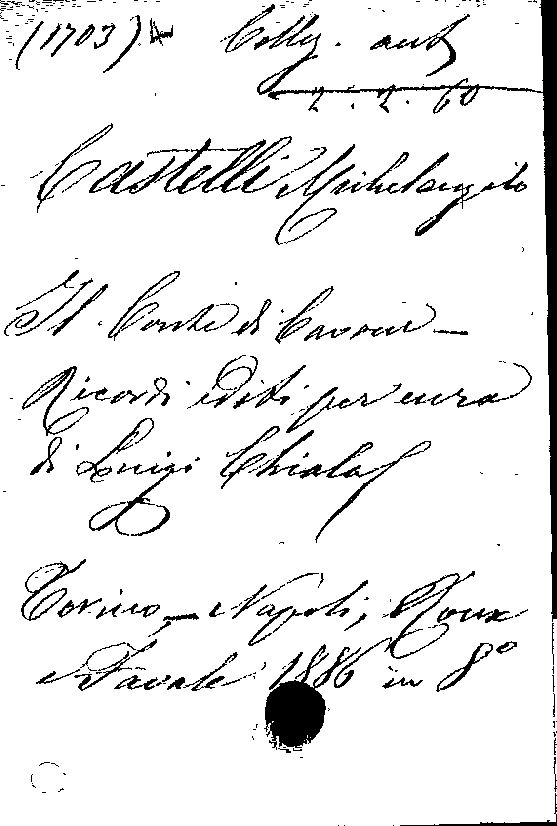 (1703) A Colly. aut
2. 2. 60
Castelli Michelangelo
Il Conte di Cavour —
Ricordi editi per cura
di Luigi Chiala
Torino — Napoli, Roux
e Favale 1886 in 8°